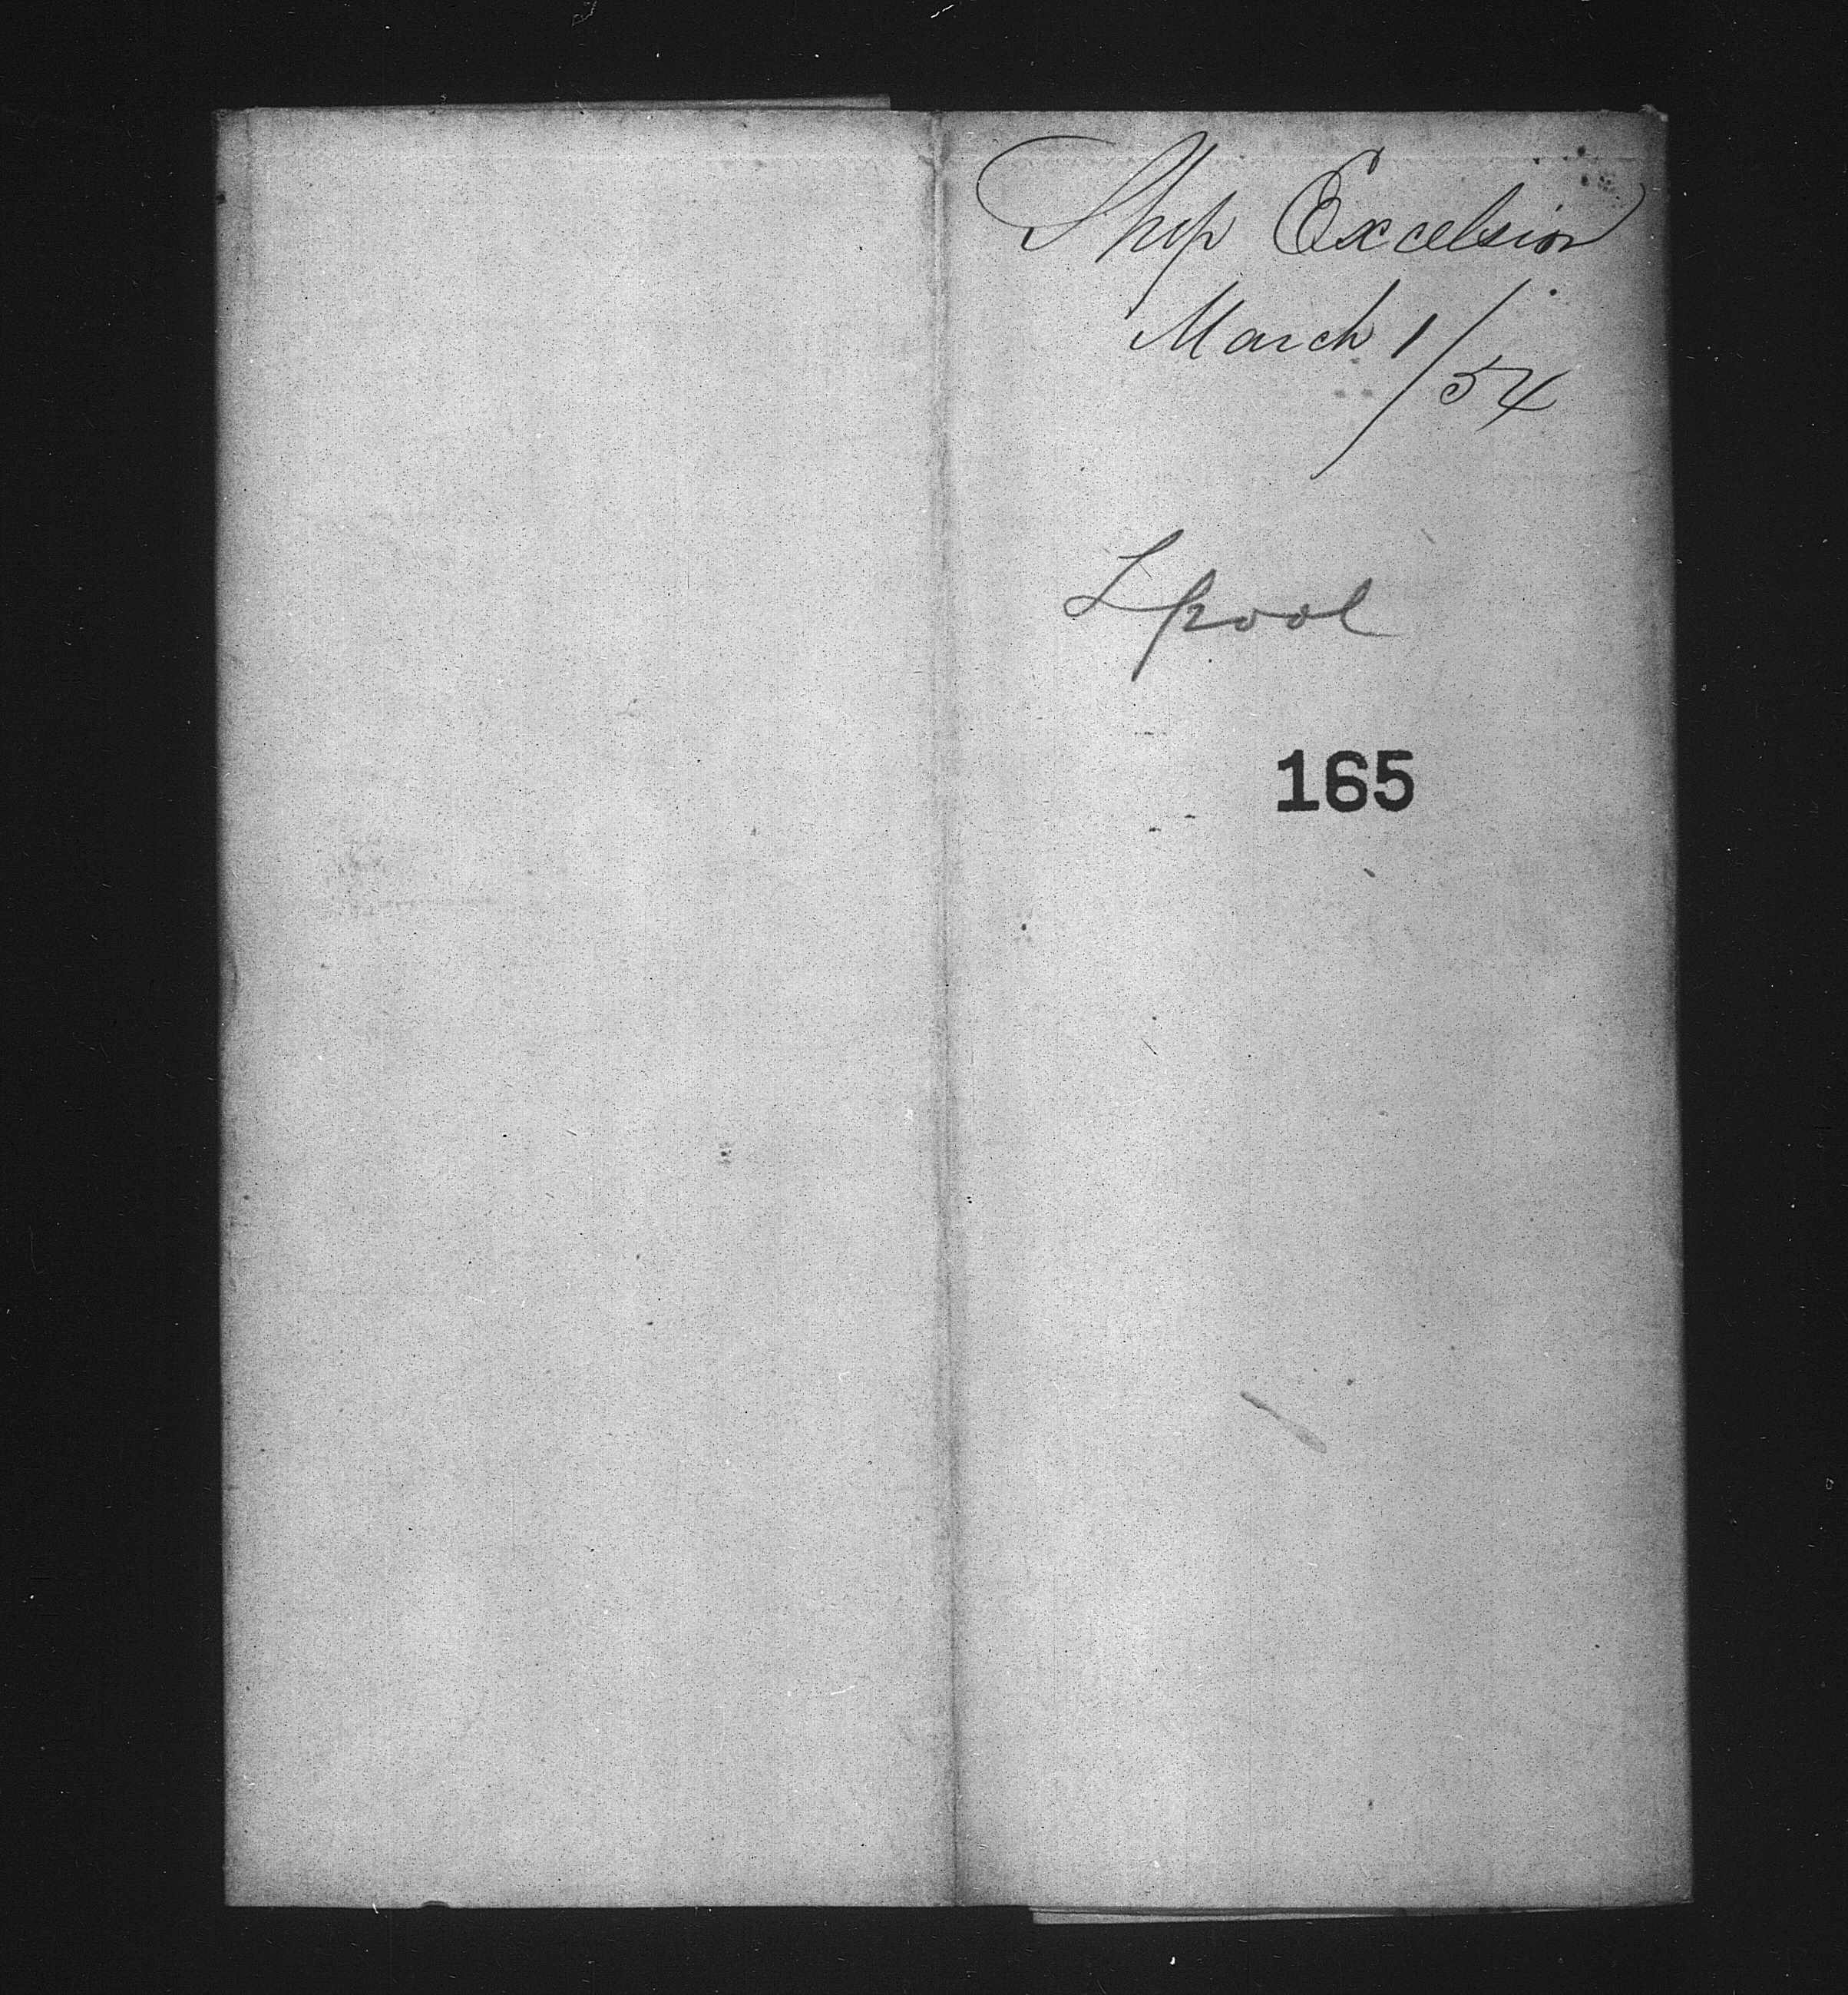 Ship Excelsior
March 1/54
Lpool
165